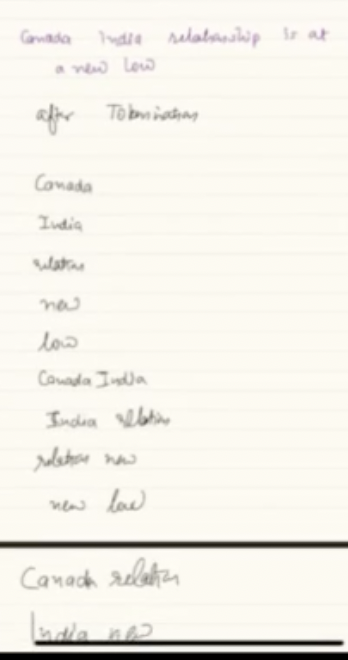 Canada India relationship is at
a new low
after Tokenization
Canada
India
relation
new
low
Canada India
India relation
relation new
new low
Canada relation
India new